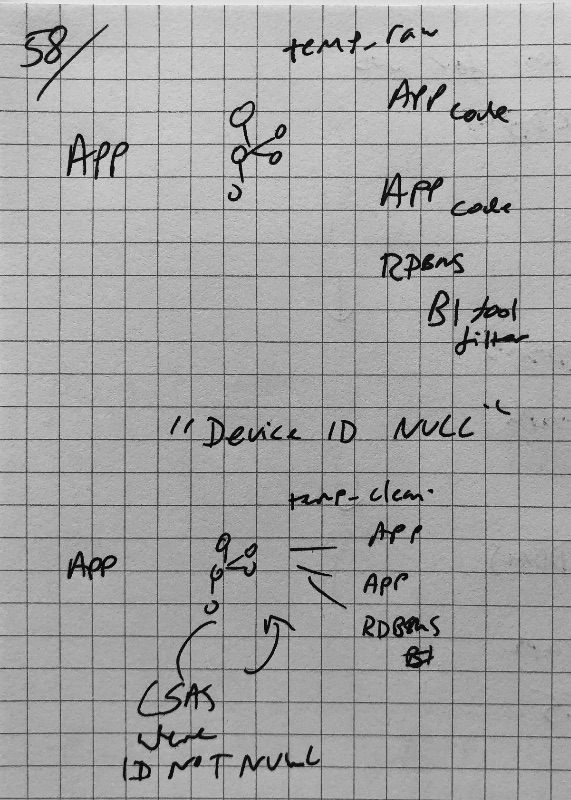 58/
temp_raw
APP
APP code
APP code
RDBMS
BI tool filter
"Device ID NULL"
temp_clean
APP
APP
APP
RDBMS
BI
CSAS
where
ID NOT NULL